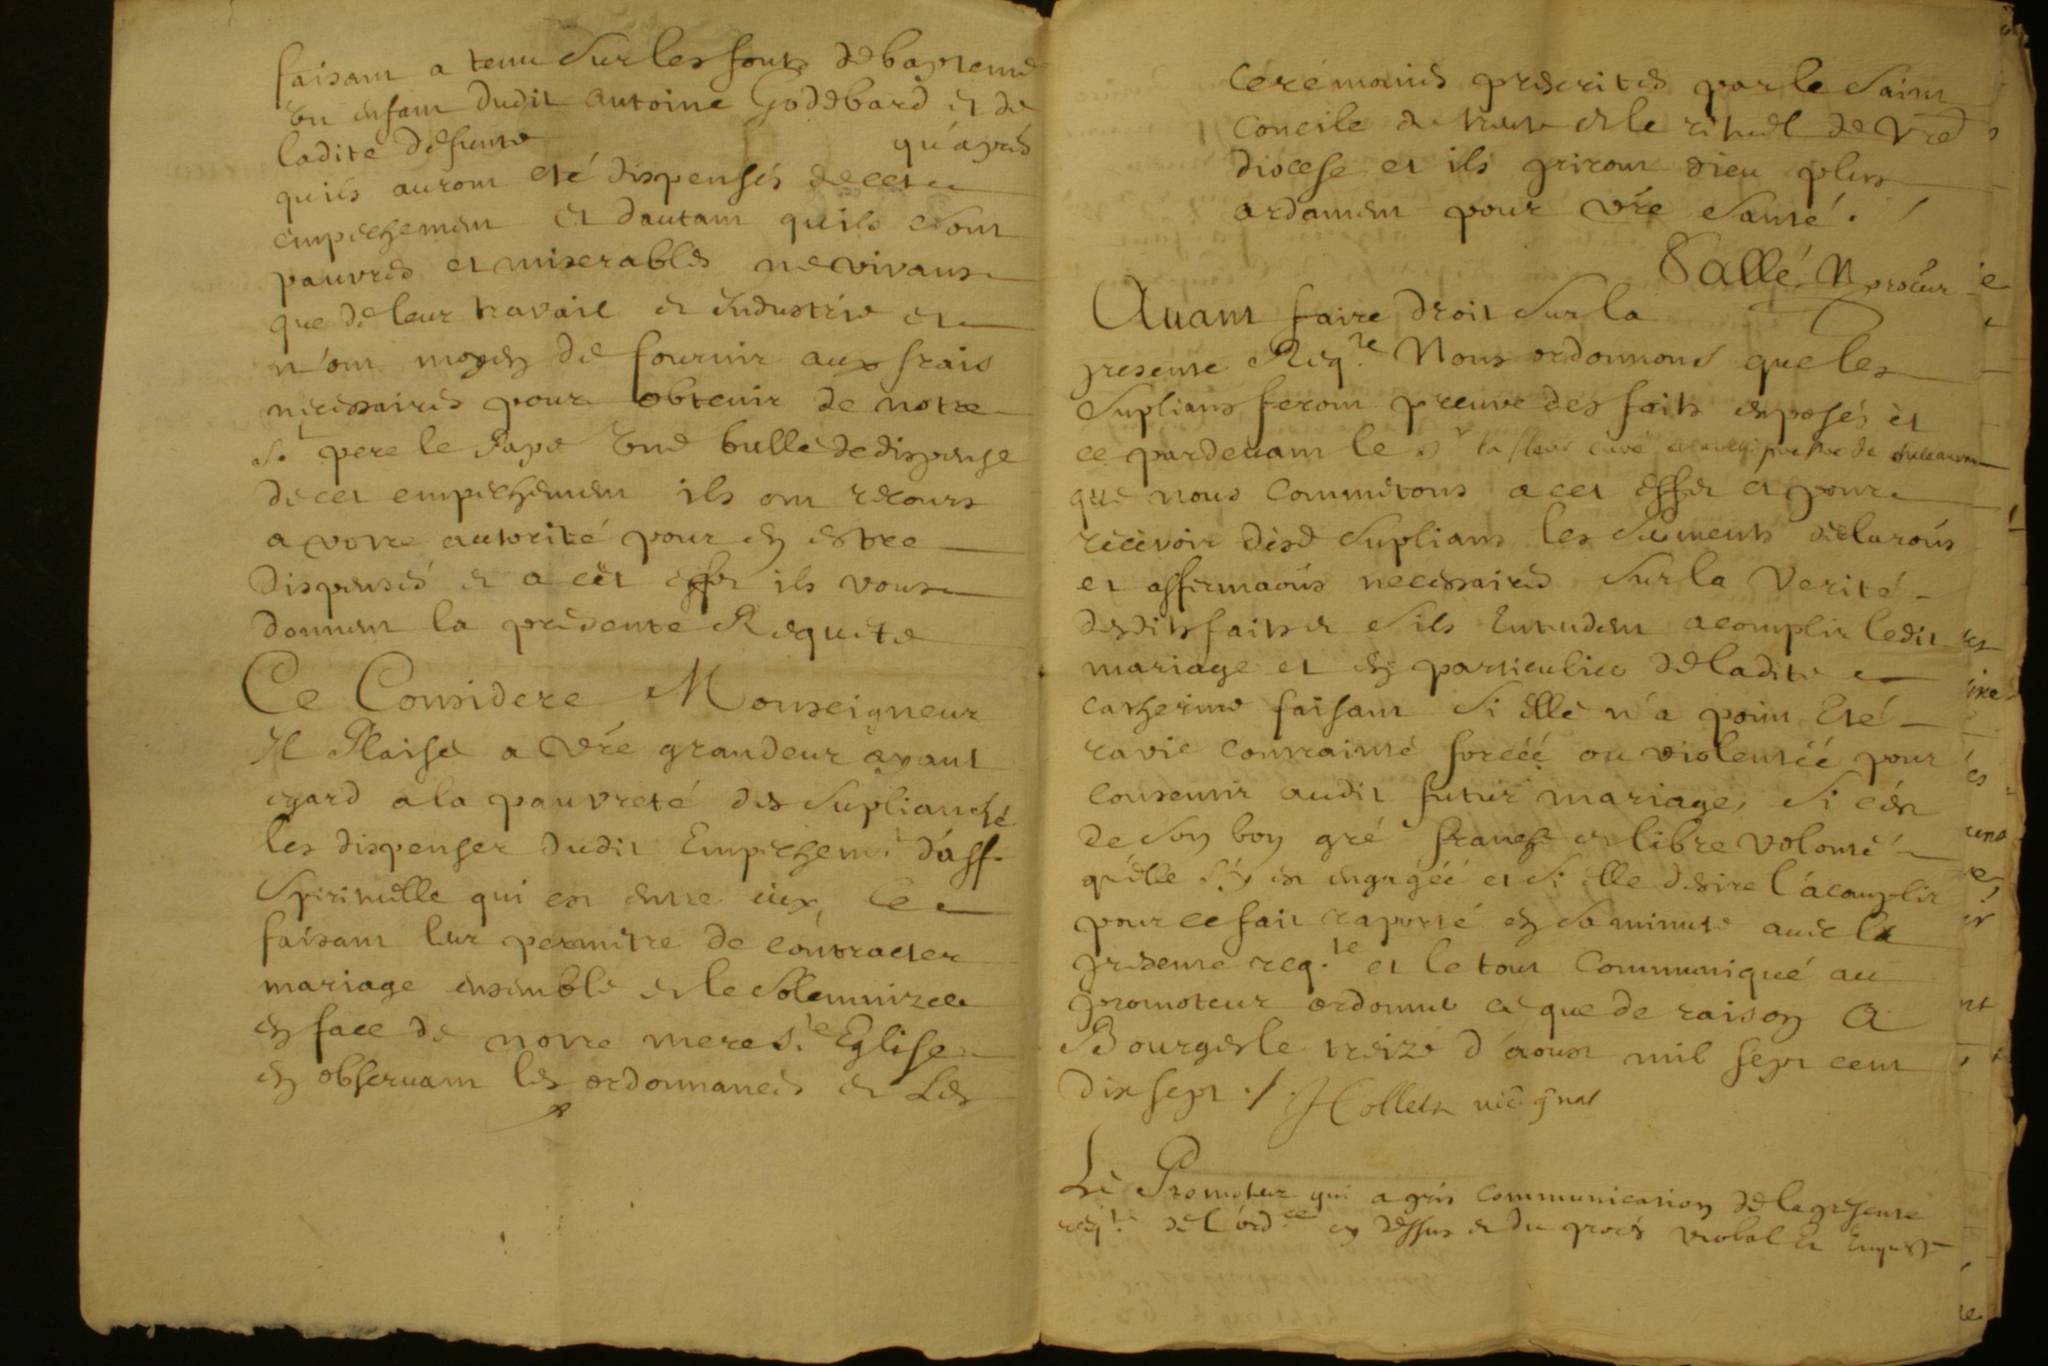 faisant a tenu sur les fonts de bapteme
un enfant dudit antoine Goddebard et de
ladite defunte qu'apres
qu'ils auront eté dispensés de cet
empechement et dautant quils sont
pauvres et miserables ne vivans
que de leur travail et industrie et
n'ont moyen de fournir aux frais
necessaires pour obtenir de notre
st pere le Pape une bulle de dispense
de cet empechement ils ont recours
a votre autorité pour en estre
dispensés et a cet effet ils vous
donnent la presente Requete
Ce Consideré Monseigneur
Il Plaise a vre grandeur ayant
egard a la pauvreté des Suplians
les dispenser dudit Empechemt d'aff.
Spirituelle qui est entre eux, Ce
faisant leur permttre de contracter
mariage ensemble et le Solemnizer
en face de notre mere ste Eglise
en observant les ordonnances et Les
Cérémonies prescrites par le Saint
Concile de trente et le rituel de vre
diocese et ils priront dieu plus
ardament pour vre Santé.
Sallé procur
Avant faire droit Sur la
presente Reqte Nous ordonnons que les
Suplians feront preuve des faits exposés et
ce pardevant le sr curé de
que nous Commetons a cet effet et pour
recevoir desd Suplians les serments declaraons
et affirmaons necessaires Sur la Verité
desdits faits et s'ils Entendent acomplir ledit
mariage et en particulier de ladite
catherine faisant Si elle n'a point Eté
ravie contrainte forcéé ou violentéé pour
consentir audit futur mariage, Si c'est
de son bon gré franche et libre volonté
qu'elle s'y est engagéé et Si elle desire l'acomplir
pour ce fait raporté en sa minute avec la
presente reqte et le tout Communiqué au
promoteur ordonner ce que de raison A
Bourges le treize d'aoust mil sept cent
dix sept ./. vic gnal
Le Promoteur qui a pris communication de la presente
reqte de l'ordce cy dessus et du procés verbal et Enqueste